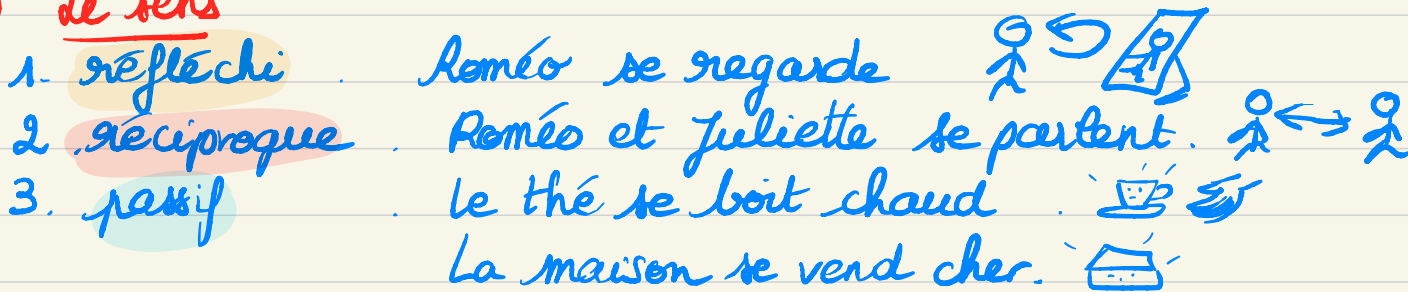 Le sens
1- réfléchi . Roméo se regarde
2 . réciproque . Roméo et Juliette se parlent .
3. passif . le thé se boit chaud .
La maison se vend cher.